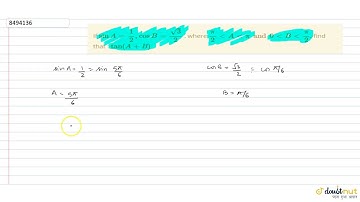 8494136
If sin A = 1/2, cos B = √3/2, where π/2 < A < π and 0 < B < π/2, find
that tan(A + B)
sin A = 1/2 = sin 5π/6
cos B = √3/2 = cos π/6
A = 5π/6
B = π/6
doubtnut